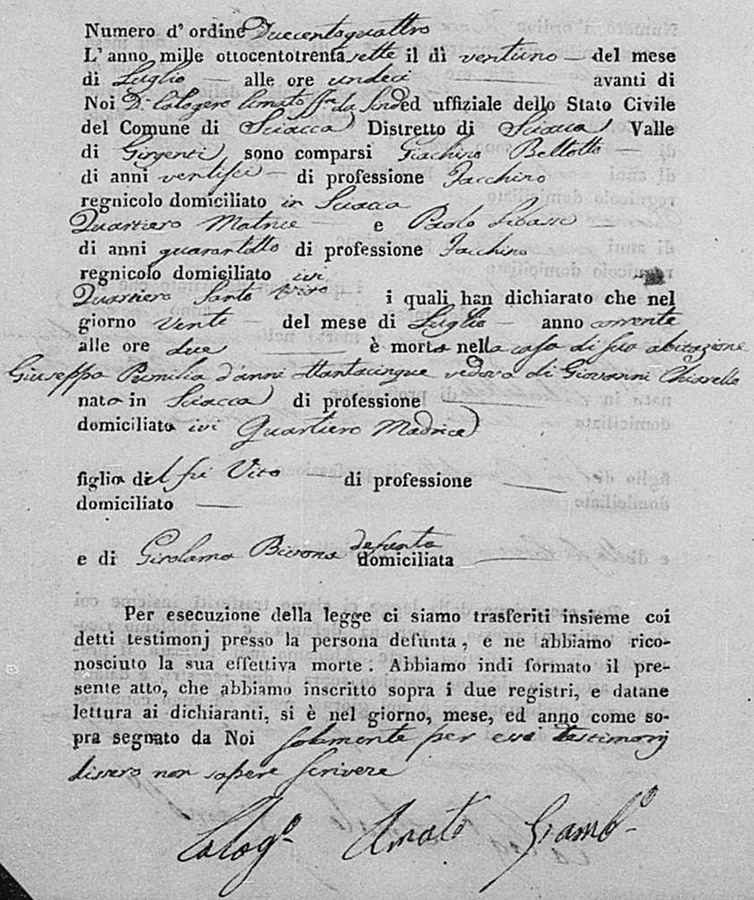 Numero d' ordine Duecentoquattro
L' anno mille ottocentotrentasette il dì ventuno del mese
di Luglio alle ore undeci avanti di
Noi Dn Calogero Amato ed uffiziale dello Stato Civile
del Comune di Sciacca Distretto di Sciacca Valle
di Girgenti sono comparsi Giachino Bellotto
di anni ventisei di professione Facchino
regnicolo domiciliato in Sciacca
Quartiero Matrice e Paolo Libassi
di anni quarantotto di professione Facchino
regnicolo domiciliato ivi
Quartiero Santo Vito i quali han dichiarato che nel
giorno vente del mese di Luglio anno corrente
alle ore due è morta nella casa di sua abitazione
Giuseppa Pumilia d'anni ottantacinque vedova di Giovanni Chiarello
nata in Sciacca di professione
domiciliata ivi Quartiero Madrice
figlia del fu Vito di professione
domiciliato
e di Girolama Bivona defunta domiciliata
Per esecuzione della legge ci siamo trasferiti insieme coi
detti testimonj presso la persona defunta, e ne abbiamo rico-
nosciuto la sua effettiva morte. Abbiamo indi formato il pre-
sente atto, che abbiamo inscritto sopra i due registri, e datane
lettura ai dichiaranti, si è nel giorno, mese, ed anno come so-
pra segnato da Noi solamente per essi testimonj
dissero non sapere scrivere
Calogo Amato Giambo